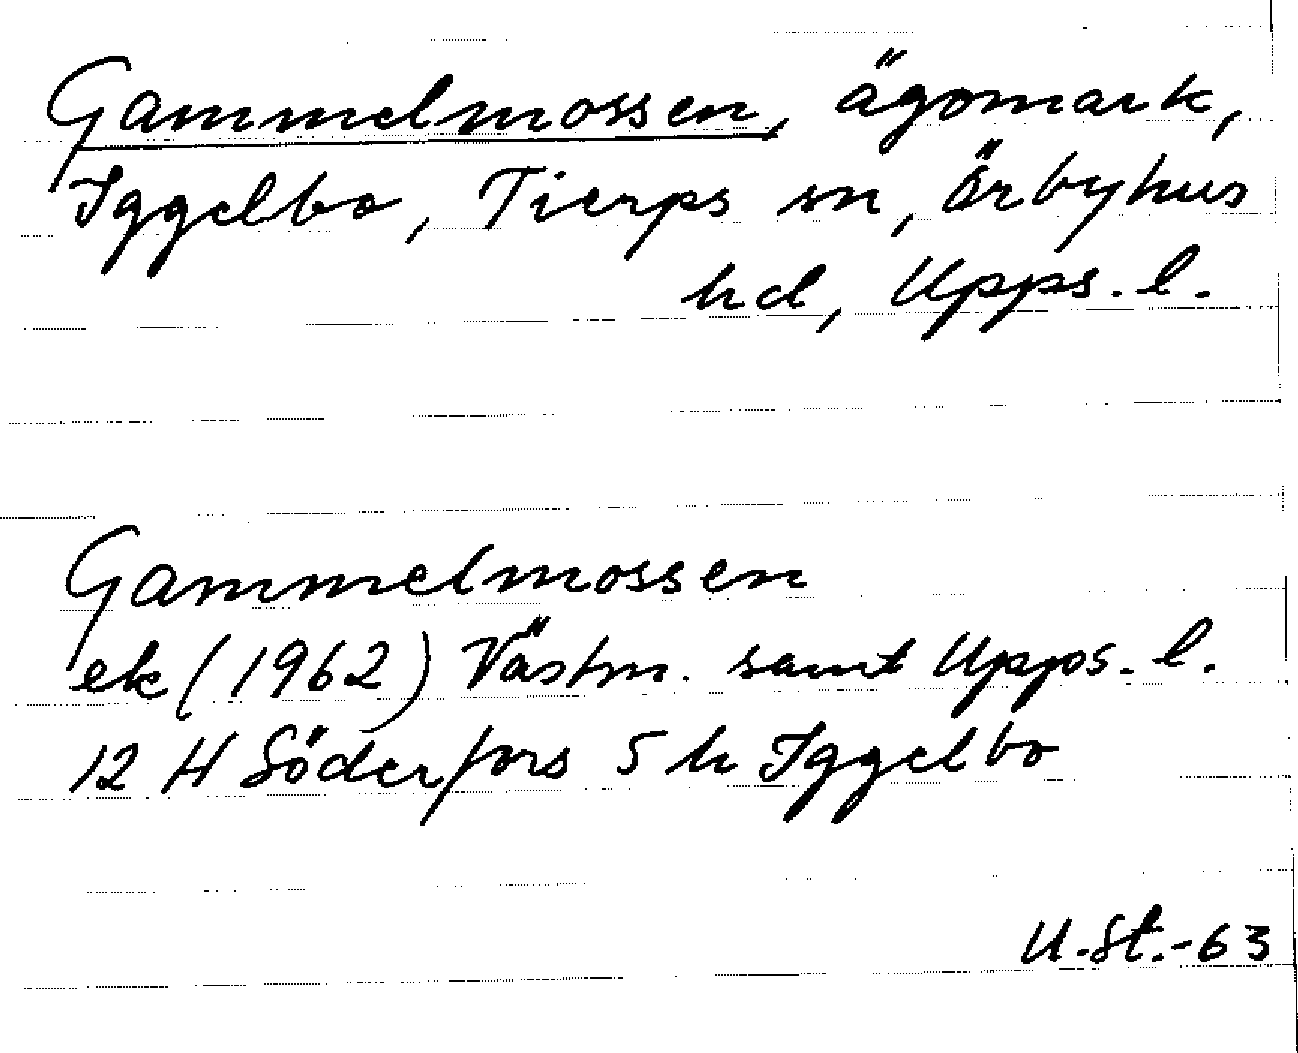 Gammelmossen, ägomark,
Iggelbo, Tierps sn, Örbyhus
hd, Upps. l.
Gammelmossen
ek (1962) Västm. samt Upps. l.
12 H Söderfors 5 h Iggelbo
U.St.-63